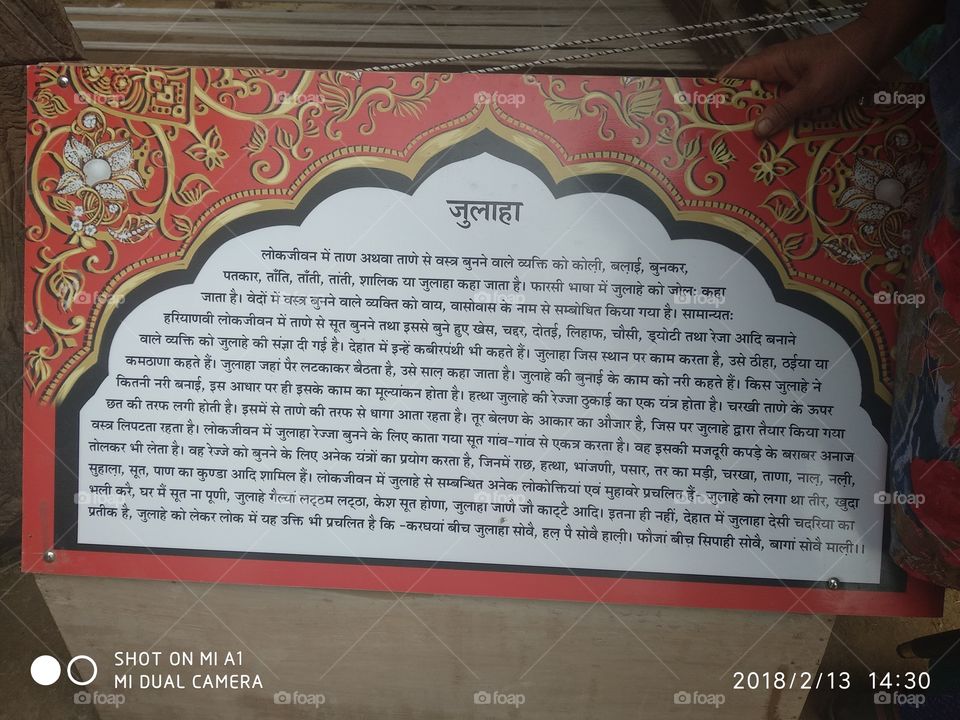 जुलाहा
लोकजीवन में ताण अथवा ताणे से वस्त्र बुनने वाले व्यक्ति को कोली, बलाई, बुनकर,
पतकार, ताँति, ताँती, तांती, शालिक या जुलाहा कहा जाता है। फारसी भाषा में जुलाहे को जोल: कहा
जाता है। वेदों में वस्त्र बुनने वाले व्यक्ति को वाय, वासोवास के नाम से सम्बोधित किया गया है। सामान्यत:
हरियाणवी लोकजीवन में ताणे से सूत बुनने तथा इससे बुने हुए खेस, चद्दर, दोतई, लिहाफ, चौसी, ड्योटी तथा रेजा आदि बनाने
वाले व्यक्ति को जुलाहे की संज्ञा दी गई है। देहात में इन्हें कबीरपंथी भी कहते हैं। जुलाहा जिस स्थान पर काम करता है, उसे ठीहा, ठईया या
कमठाणा कहते हैं। जुलाहा जहां पैर लटकाकर बैठता है, उसे साल कहा जाता है। जुलाहे की बुनाई के काम को नरी कहते हैं। किस जुलाहे ने
कितनी नरी बनाई, इस आधार पर ही इसके काम का मूल्यांकन होता है। हत्था जुलाहे की रेज्जा ठुकाई का एक यंत्र होता है। चरखी ताणे के ऊपर
छत की तरफ लगी होती है। इसमें से ताणे की तरफ से धागा आता रहता है। तूर बेलण के आकार का औजार है, जिस पर जुलाहे द्वारा तैयार किया गया
वस्त्र लिपटता रहता है। लोकजीवन में जुलाहा रेज्जा बुनने के लिए काता गया सूत गांव-गांव से एकत्र करता है। वह इसकी मजदूरी कपड़े के बराबर अनाज
तोलकर भी लेता है। वह रेज्जे को बुनने के लिए अनेक यंत्रों का प्रयोग करता है, जिनमें राछ, हत्था, भांजणी, पसार, तर का मड़ी, चरखा, ताणा, नाल, नली,
सुहाला, सूत, पाण का कुण्डा आदि शामिल हैं। लोकजीवन में जुलाहे से सम्बन्धित अनेक लोकोक्तियां एवं मुहावरे प्रचलित हैं - जुलाहे को लगा था तीर, खुदा
भली करे, घर मैं सूत ना पूणी, जुलाहे गैल्यां लट्ठम लट्ठा, केश सूत होणा, जुलाहा जाणे जौ काट्टे आदि। इतना ही नहीं, देहात में जुलाहा देसी चदरिया का
प्रतीक है, जुलाहे को लेकर लोक में यह उक्ति भी प्रचलित है कि -करघयां बीच जुलाहा सोवै, हल पै सोवै हाली। फौजां बीच सिपाही सोवै, बागां सोवै माली।।
SHOT ON MI A1
MI DUAL CAMERA
2018/2/13 14:30
foap